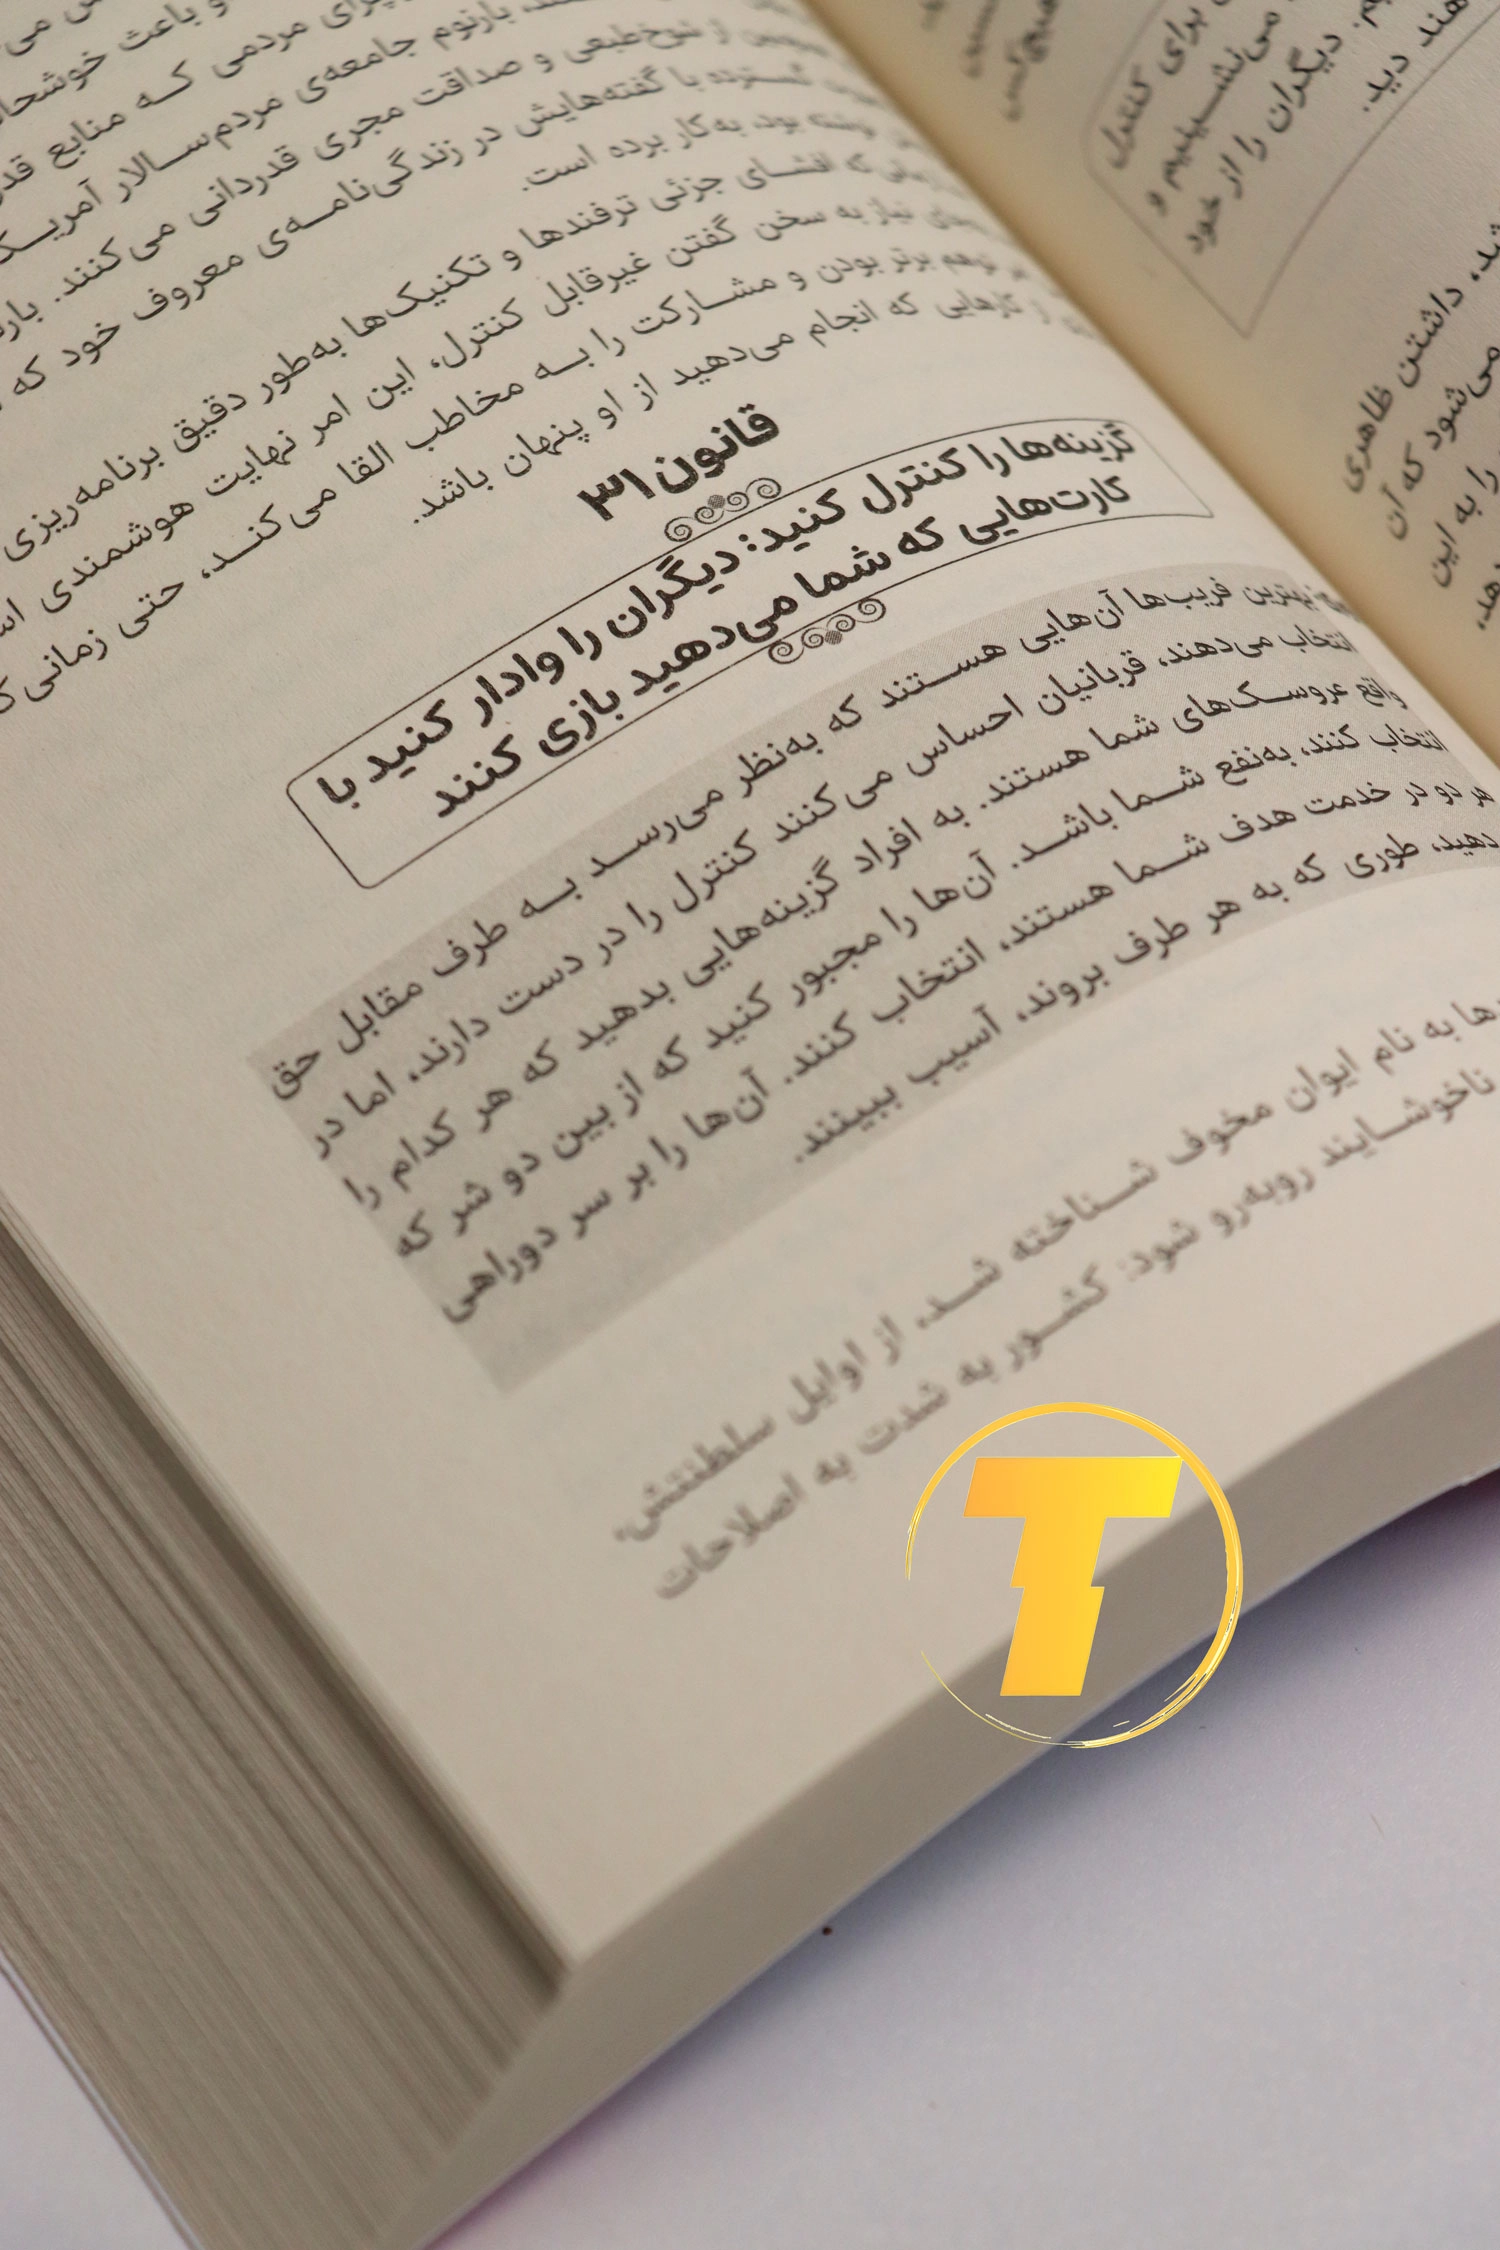 و باعث خوشحا
مردمی کـه منابع قد
بارنوم جامعه‌ی مردم‌سـالار آمریـک
از شوخ‌طبعی و صداقت مجری قدردانی می‌کنند. بار
گسترده با گفته‌هایش در زندگی‌نامـه‌ی معروف خود که
نوشته بود، به‌کار برده است.
که افشـای جزئی ترفندها و تکنیک‌ها به‌طور دقیق برنامه‌ریزی
نیاز به سخن گفتن غیرقابل کنترل، این امر نهایت هوشمندی
توهم برتر بودن و مشـارکت را بـه مخاطب القا می‌کنـد، حتی زمانی‌که
از کارهایی که انجام می‌دهید از او پنهان باشد.
قانون ۳۱
گزینه‌ها را کنترل کنید: دیگران را وادار کنید با
کارت‌هایی که شما می‌دهید بازی کنند
بهترین فریب‌ها آن‌هایی هسـتند که به‌نظر می‌رسـد بـه طرف مقابل حق
انتخاب می‌دهند، قربانیان احساس می‌کنند کنترل را در دست دارند، اما در
واقع عروسـک‌های شما هستند. به افراد گزینه‌هایی بدهید که هر کدام را
انتخاب کنند، به‌نفع شـما باشـد. آن‌ها را مجبور کنید که از بین دو شر که
هر دو در خدمت هدف شـما هستند، انتخاب کنند. آن‌ها را بر سر دوراهی
دهید، طوری که به هر طرف بروند، آسیب ببینند.
به نام ایوان مخوف شـناخته شـد، از اوایل سلطنتش،
ناخوشـایند روبه‌رو شود: کشـور به شدت به اصلاحات
برای کنترل
می‌نشـینیم و
دیگران را از خود
دید.
داشتن ظاهری
می‌شود که آن
را به این
T